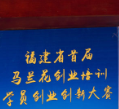 福建省首届
马兰花创业培训
学员创业创新大赛